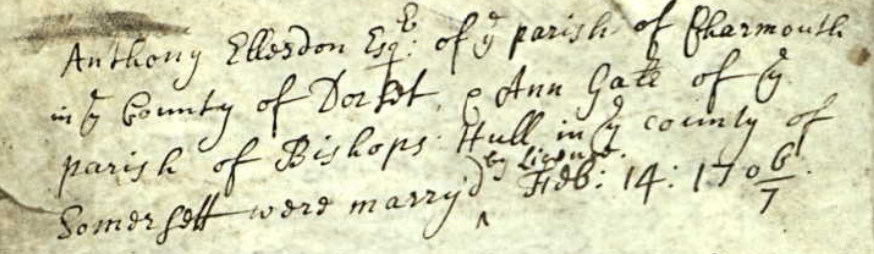 Anthony Ellesdon Esqr: of ye parish of Charmouth
in ye County of Dorset, & Ann Gale of ye
parish of Bishops Hull in ye county of
Somersett were marry'd ^by License. Feb: 14: 170 6/7.